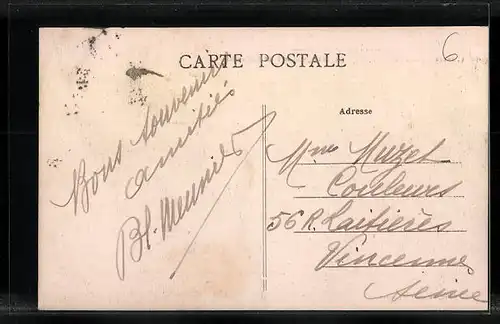 CARTE POSTALE
6
Bons souvenirs
amitiés
Bl. Meunier
Adresse
Mme Muzet
Couleurs
56 R. Laitières
Vincennes
Seine